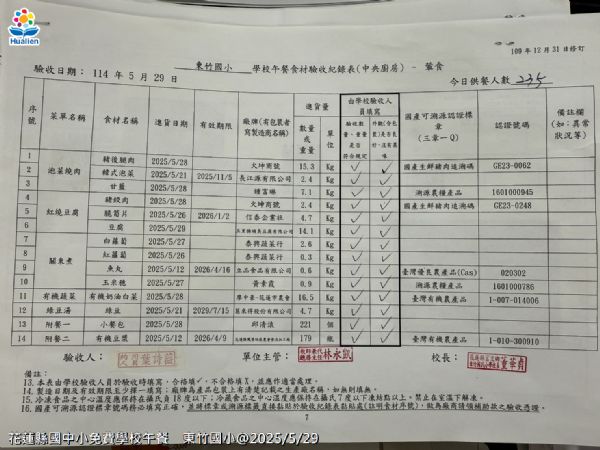 Hualien
109 年 12 月 31 日修訂
東竹國小 學校午餐食材驗收紀錄表(中央廚房) - 葷食
驗收日期： 114 年 5 月 29 日
今日供餐人數 235
序號 菜單名稱 食材名稱 進貨日期 有效期限 廠牌(有包裝者寫製造商名稱) 進貨量 由學校驗收人員填寫 國產可溯源認證標章(三章一Q) 認證號碼 備註欄(如：異常狀況等)
數量或重量 單位 驗收數量、重量是否符合規定 外觀(含包裝)是否良好、沒有異味
1 泡菜燒肉 豬後腿肉 2025/5/28 火坤商號 15.3 Kg ✓ ✓ 國產生鮮豬肉追溯碼 GE23-0062
2 韓式泡菜 2025/5/21 2025/11/5 長江源有限公司 2.4 Kg ✓ ✓
3 甘藍 2025/5/28 鍾富琳 7.1 Kg ✓ ✓ 溯源農糧產品 1601000945
4 紅燒豆腐 豬絞肉 2025/5/28 火坤商號 2.4 Kg ✓ ✓ 國產生鮮豬肉追溯碼 GE23-0248
5 脆筍片 2025/5/26 2026/1/2 信泰企業社 4.7 Kg ✓ ✓
6 豆腐 2025/5/29 14.1 Kg ✓ ✓
7 關東煮 白蘿蔔 2025/5/27 泰興蔬菜行 2.6 Kg ✓ ✓
8 紅蘿蔔 2025/5/26 泰興蔬菜行 0.3 Kg ✓ ✓
9 魚丸 2025/5/12 2026/4/16 立品食品有限公司 0.6 Kg ✓ ✓ 臺灣優良農產品(Cas) 020302
10 玉米穗 2025/5/27 黃素霞 0.9 Kg ✓ ✓ 溯源農糧產品 1601000786
11 有機蔬菜 有機奶油白菜 2025/5/28 16.5 Kg ✓ ✓ 臺灣有機農產品 1-007-014006
12 綠豆湯 綠豆 2025/5/21 2029/7/15 4.7 Kg ✓ ✓
13 附餐一 小餐包 2025/5/28 邱清滾 221 個 ✓ ✓
14 附餐二 有機豆漿 2025/5/12 2026/4/9 179 瓶 ✓ ✓ 臺灣有機農產品 1-010-300910
驗收人： 單位主管： 林永凱 校長：
備註：
13. 本表由學校驗收人員於驗收時填寫，合格填✓，不合格填X，並應作適當處理。
14. 製造日期及有效期限至少擇一填寫；廠牌為產品包裝上有清楚記載之生產廠名稱，如無則填無。
15. 冷凍食品之中心溫度應保持在攝氏負18度以下；冷藏食品之中心溫度應保持在攝氏7度以下凍結點以上。禁止在室溫下解凍。
16. 國產可溯源認證標章號碼務必填寫正確，並將標章或溯源標籤直接黏貼於驗收紀錄表黏貼處(註明食材序號)，做為廠商請領補助款之驗收憑證。
7
花蓮縣國中小免費學校午餐 東竹國小@2025/5/29